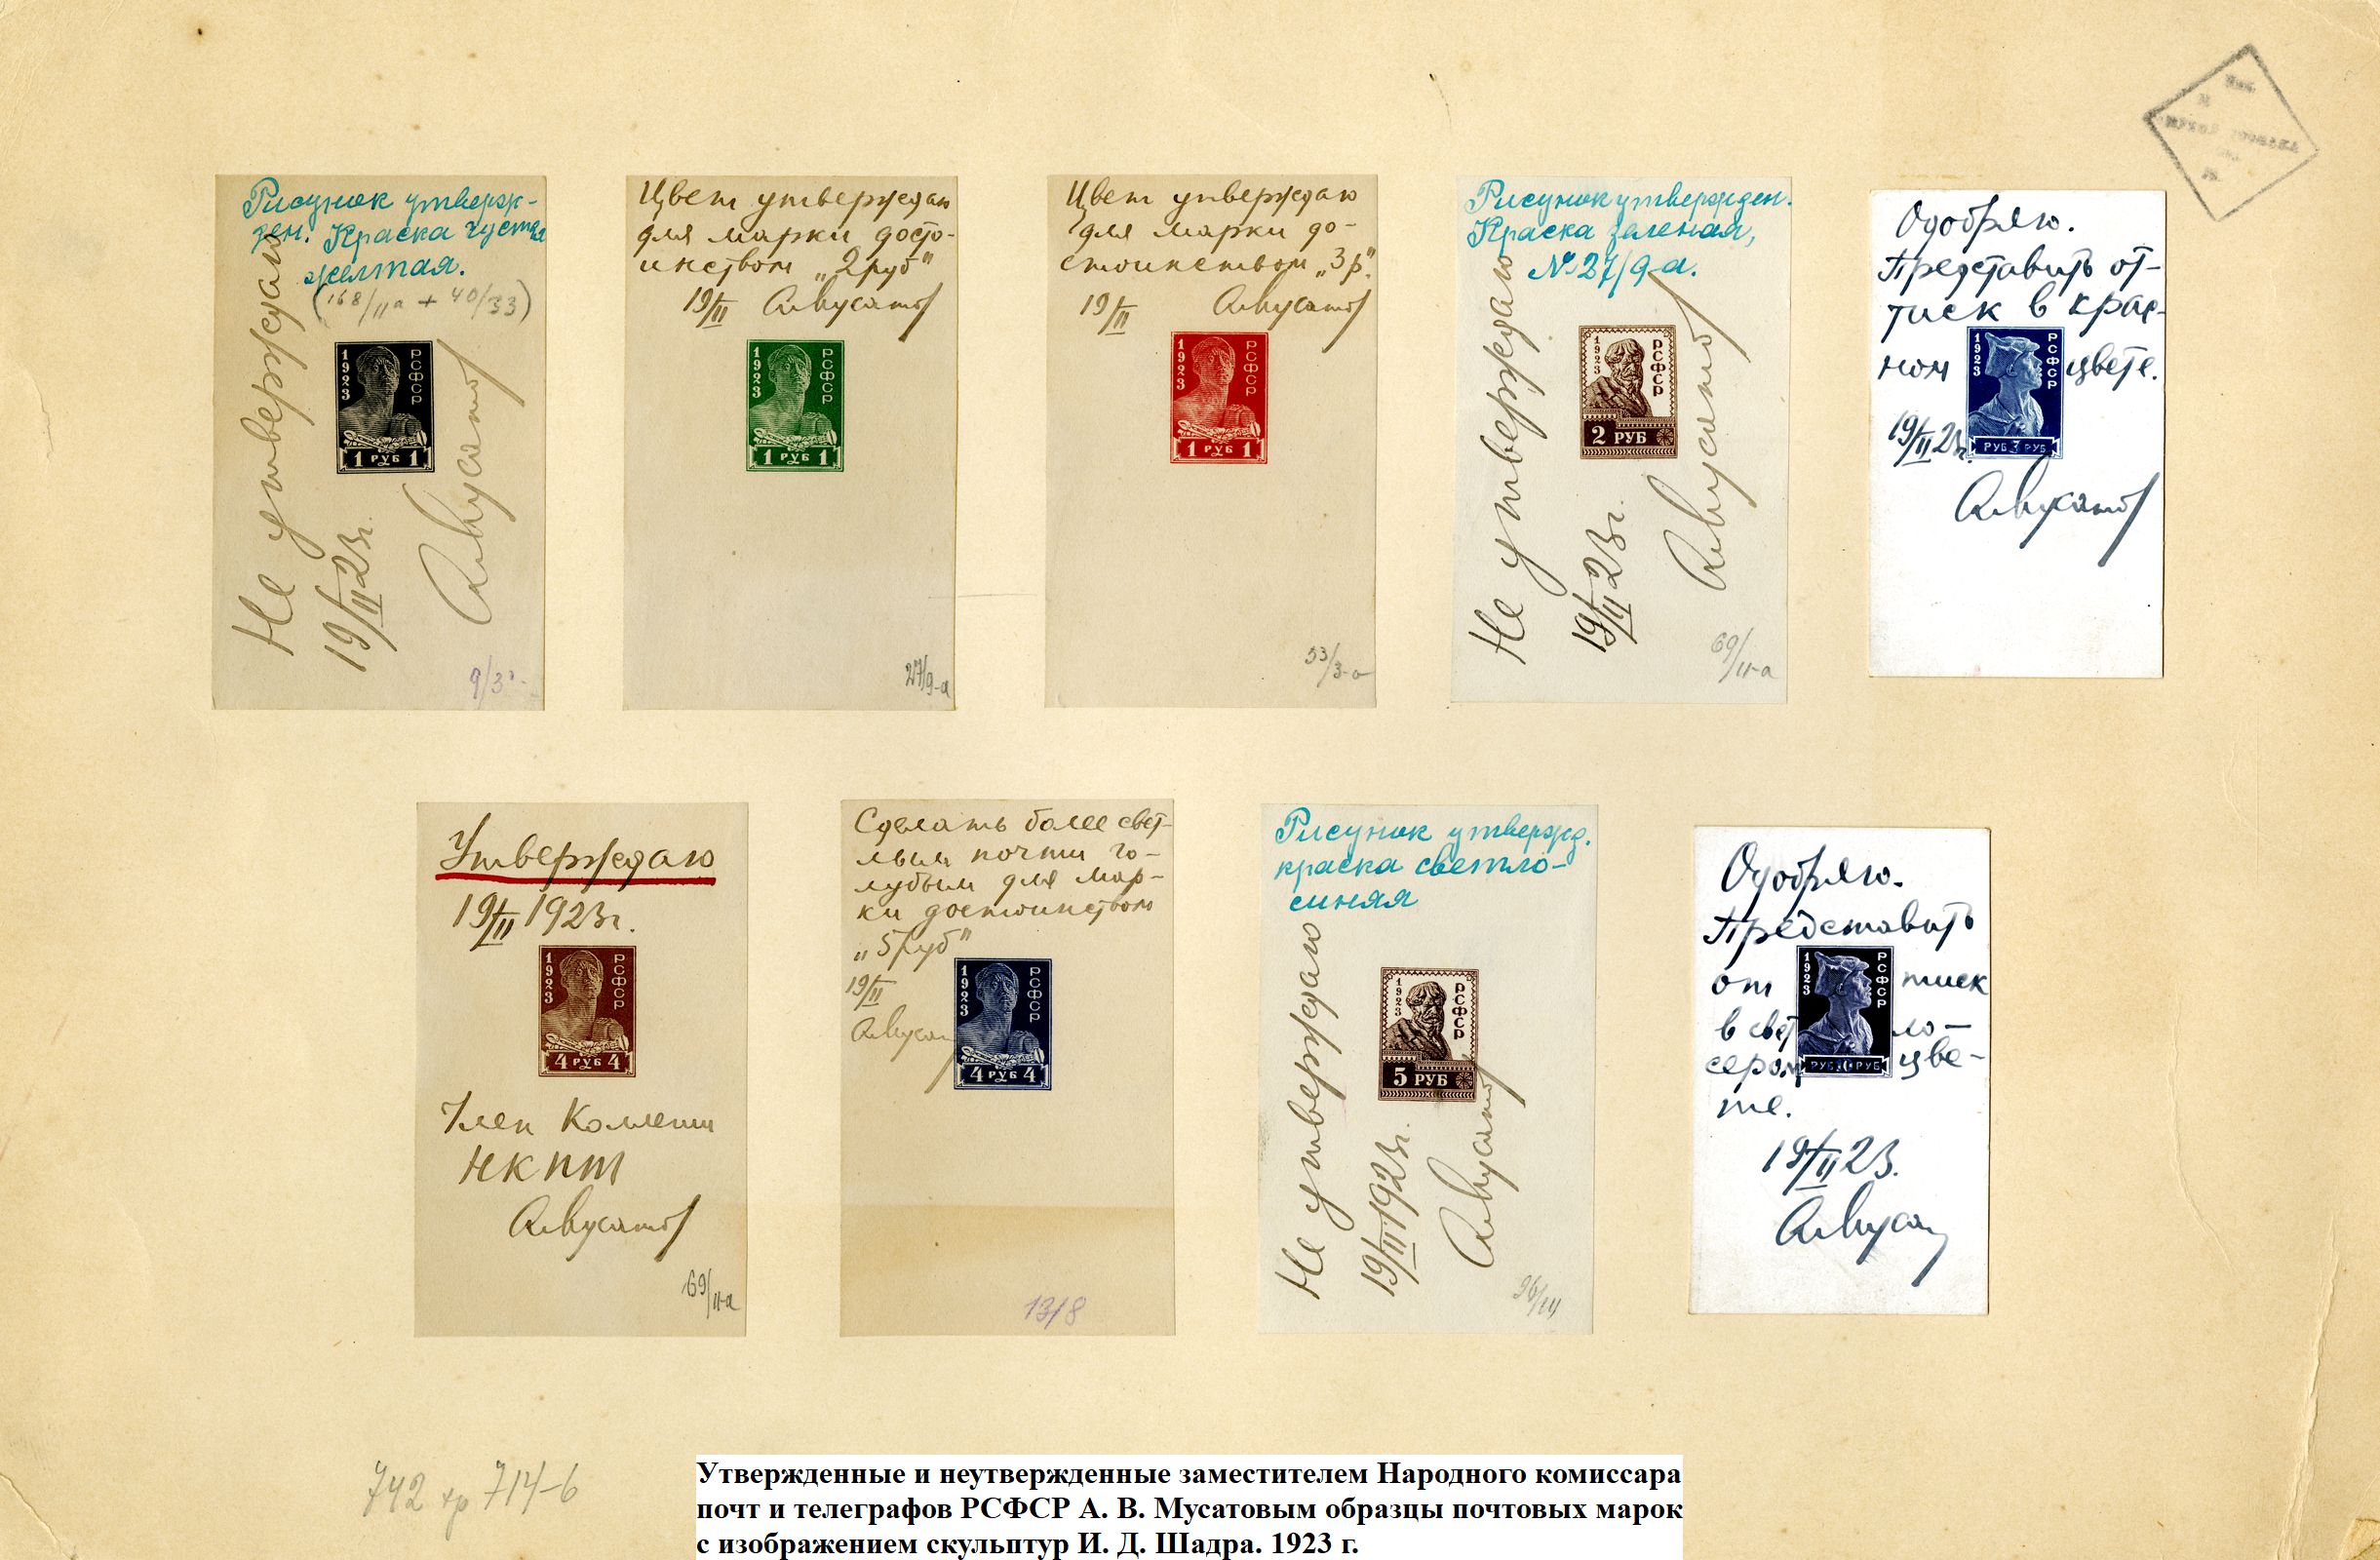 Рисунок утверж-
ден. Краска густая
желтая.
(168/11а + 40/33)
Не утверждаю
19/II 23г.
АМусатов
1923
РСФСР
1 РУБ 1
9/3
Цвет утверждаю
для марки досто-
инством „2 руб"
19/II АМусатов
1923
РСФСР
1 РУБ 1
27/9-а
Цвет утверждаю
для марки до-
стоинством „3 р".
19/II АМусатов
1923
РСФСР
1 РУБ 1
53/3-а
Рисунок утвержден.
Краска зеленая,
№ 27/9-а.
Не утверждаю
19/II 23г.
АМусатов
1923
РСФСР
2 РУБ
69/11-а
Одобряю.
Представить от-
тиск в крас-
ном цвете.
19/II 23г.
АМусатов
1923
РСФСР
РУБ 3 РУБ
Утверждаю
19/II 1923г.
1923
РСФСР
4 РУБ 4
Член Коллегии
НКПТ
АМусатов
69/11-а
Сделать более свет-
лым почти го-
лубым для мар-
ки достоинством
„5 руб"
19/II
АМусат
1923
РСФСР
4 РУБ 4
13/8
Рисунок утвержд.
краска светло-
синяя
Не утверждаю
19/II 1923г.
АМусатов
1923
РСФСР
5 РУБ
96/14
Одобряю.
Представить
от тиск
в свет ло-
сером цве-
те.
19/II 23.
АМусат
1923
РСФСР
РУБ 10 РУБ
742 хр 714-6
Утвержденные и неутвержденные заместителем Народного комиссара
почт и телеграфов РСФСР А. В. Мусатовым образцы почтовых марок
с изображением скульптур И. Д. Шадра. 1923 г.